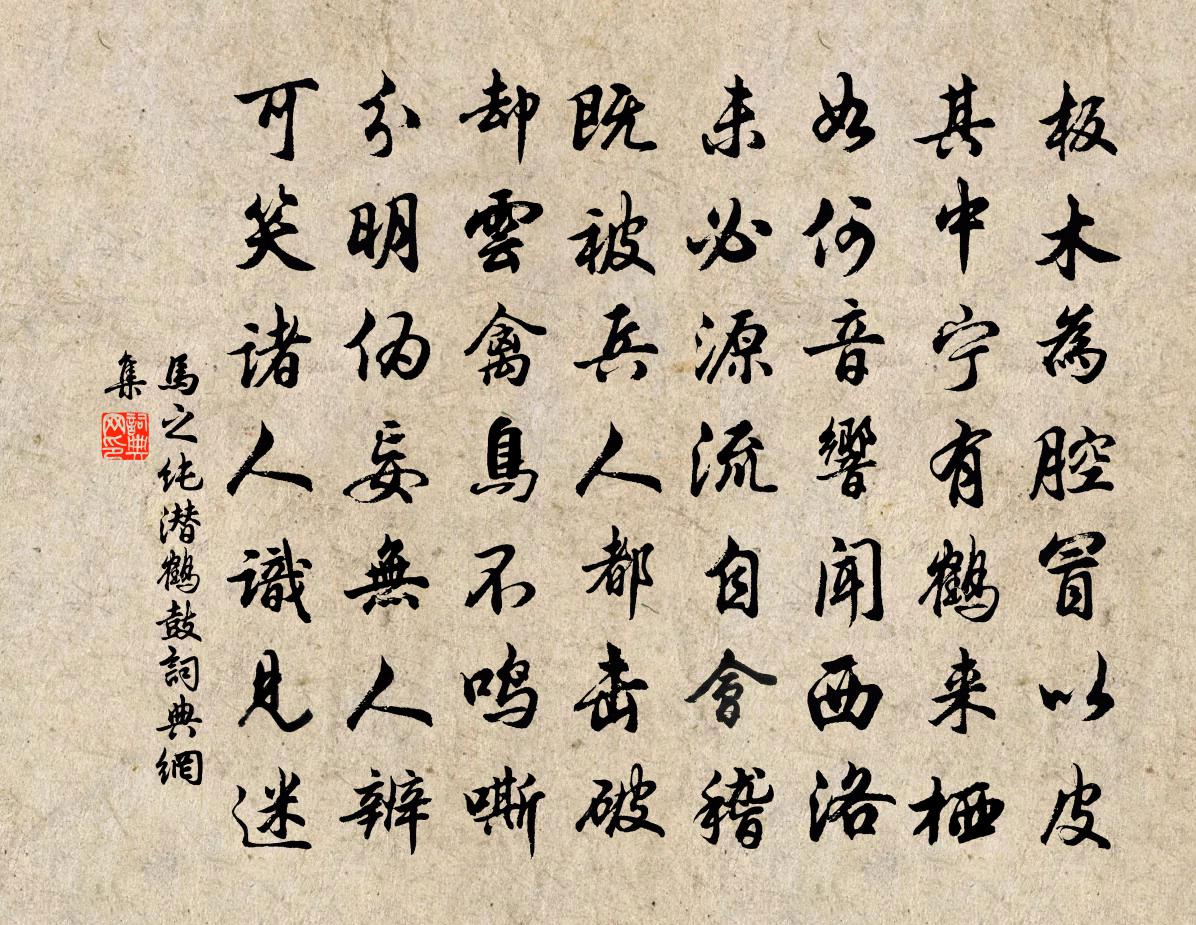 板木為腔冒以皮
其中宁有鶴来栖
如何音響聞西洛
未必源流自會稽
既被兵人都击破
却雲禽鳥不鸣嘶
分明伪妄無人辨
可笑诸人識見迷
馬之纯潜鶴鼓詞典網
集
詞典网印